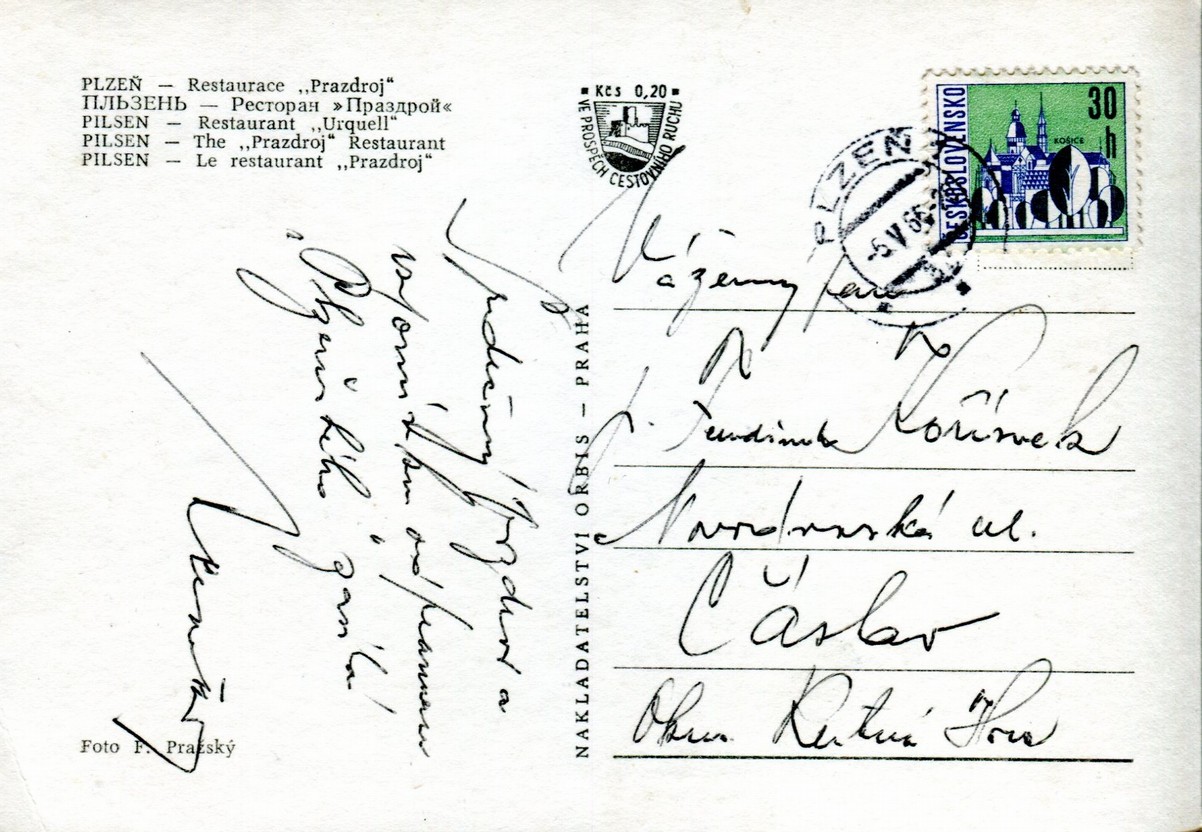 PLZEŇ — Restaurace ,,Prazdroj“
ПЛЬЗЕНЬ — Ресторан »Праздрой«
PILSEN — Restaurant ,,Urquell“
PILSEN — The ,,Prazdroj“ Restaurant
PILSEN — Le restaurant ,,Prazdroj“
Kčs 0,20
VE PROSPĚCH CESTOVNÍHO RUCHU
ČESKOSLOVENSKO
30 h
KOŠICE
PLZEŇ
-5.V.66
Srdečný pozdrav a
vzpomínku od pramene
„Plzeňského“ zasílá
NAKLADATELSTVÍ ORBIS — PRAHA
Vážený pan
Kořínek
Novodvorská ul.
Čáslav
Okres Kutná Hora
Foto F. Pražský